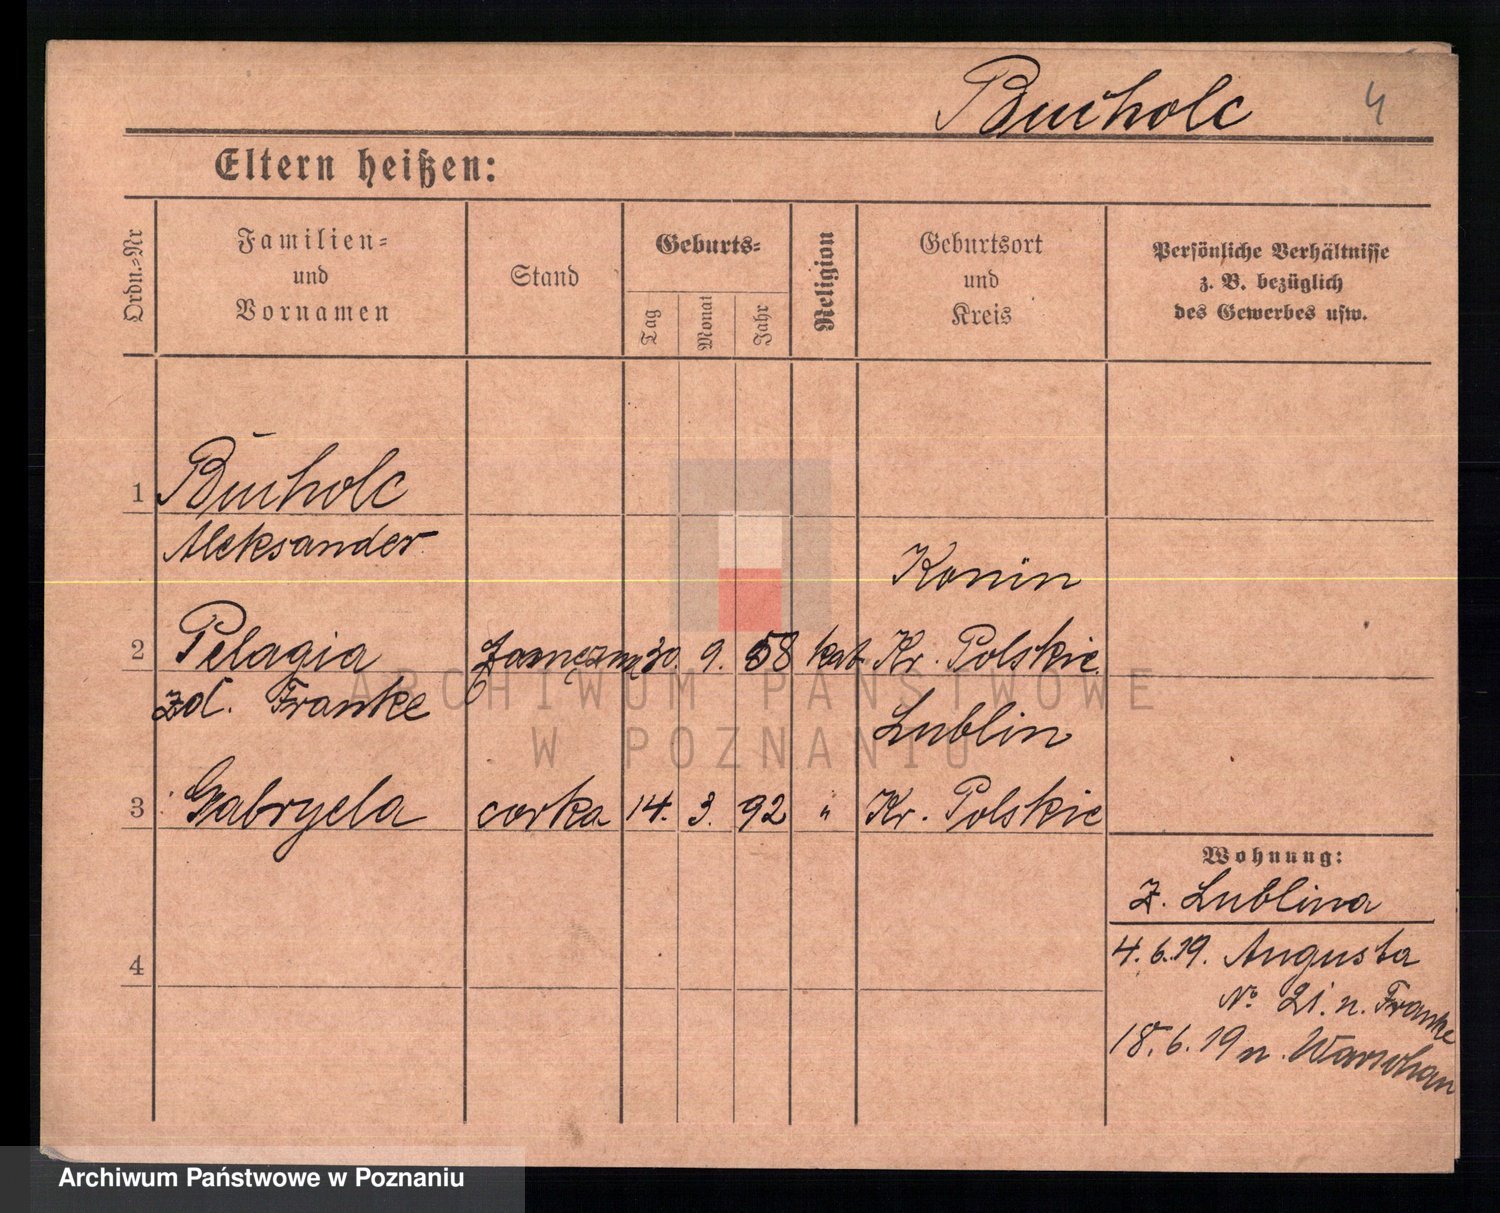 Bucholc 4
Eltern heißen:
Ordn.-Nr
Familien-
und
Vornamen
Stand
Geburts-
Tag
Monat
Jahr
Religion
Geburtsort
und
Kreis
Persönliche Verhältnisse
z. B. bezüglich
des Gewerbes usw.
1 Bucholc
Aleksander
Konin
2 Pelagia 30. 9. 58 kat. Kr. Polskie
zd. Franke
Lublin
3 Gabryela corka 14. 3. 92 " Kr. Polskie
4
Wohnung:
z. Lublina
4. 6. 19. Augusta
No 21. n. Franke
18. 6. 19 n. Warschau
ARCHIWUM PAŃSTWOWE
W POZNANIU
Archiwum Państwowe w Poznaniu